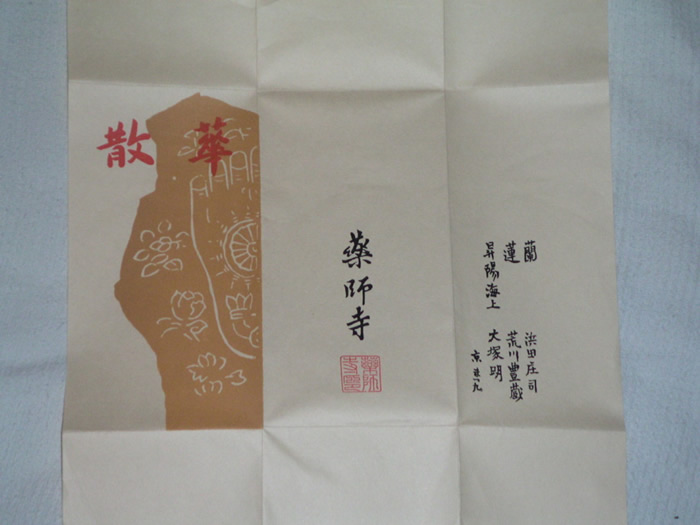 散華
藥師寺
藥師寺印
蘭 浜田庄司
蓮 荒川豊蔵
昇陽海上 大塚明